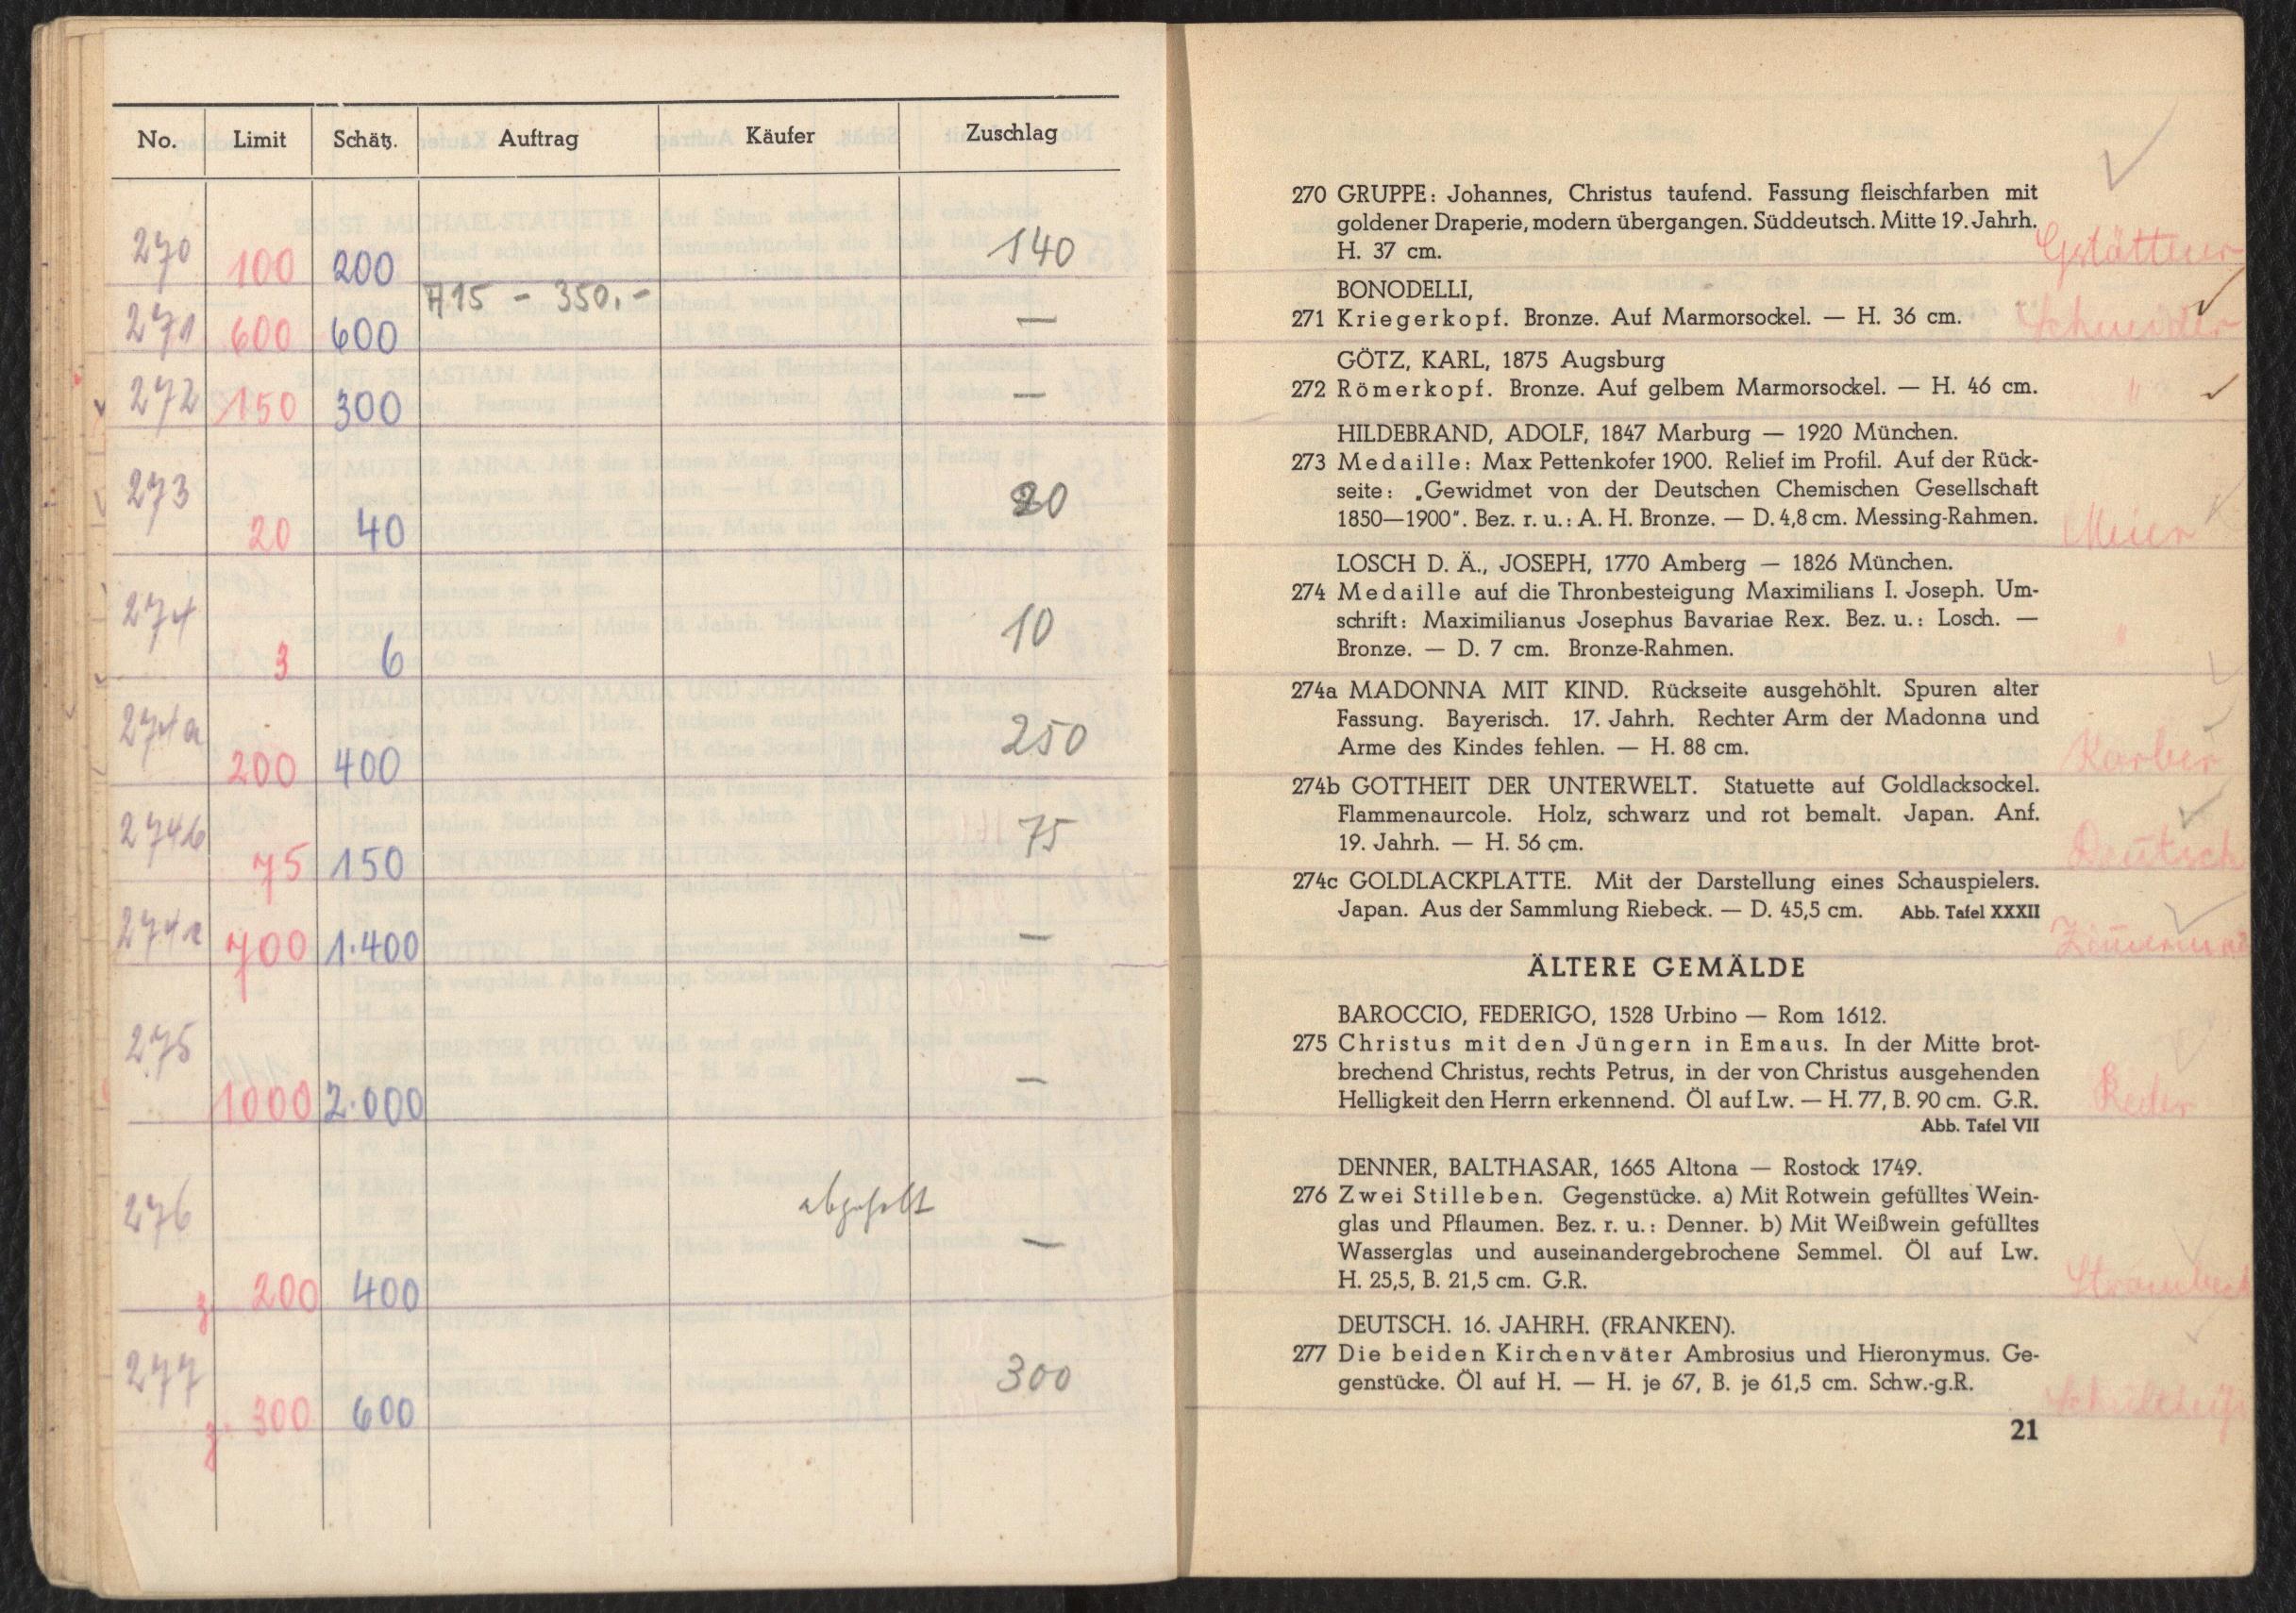 No. Limit Schätz. Auftrag Käufer Zuschlag
270 100 200 140
A15 - 350.-
271 600 600 —
272 150 300 —
273 20 40 20
274 3 6 10
274a 200 400 250
274b 75 150 75
274c 700 1.400 —
275 1000 2.000 —
276 200 400 abgeholt —
277 300 600 300
270 GRUPPE: Johannes, Christus taufend. Fassung fleischfarben mit
goldener Draperie, modern übergangen. Süddeutsch. Mitte 19. Jahrh.
H. 37 cm. Gstättner
BONODELLI,
271 Kriegerkopf. Bronze. Auf Marmorsockel. — H. 36 cm. Schneider
GÖTZ, KARL, 1875 Augsburg
272 Römerkopf. Bronze. Auf gelbem Marmorsockel. — H. 46 cm. "
HILDEBRAND, ADOLF, 1847 Marburg — 1920 München.
273 Medaille: Max Pettenkofer 1900. Relief im Profil. Auf der Rück-
seite: „Gewidmet von der Deutschen Chemischen Gesellschaft
1850—1900". Bez. r. u.: A. H. Bronze. — D. 4,8 cm. Messing-Rahmen. Meier
LOSCH D. Ä., JOSEPH, 1770 Amberg — 1826 München.
274 Medaille auf die Thronbesteigung Maximilians I. Joseph. Um-
schrift: Maximilianus Josephus Bavariae Rex. Bez. u.: Losch. —
Bronze. — D. 7 cm. Bronze-Rahmen. "
274a MADONNA MIT KIND. Rückseite ausgehöhlt. Spuren alter
Fassung. Bayerisch. 17. Jahrh. Rechter Arm der Madonna und
Arme des Kindes fehlen. — H. 88 cm. Karber
274b GOTTHEIT DER UNTERWELT. Statuette auf Goldlacksockel.
Flammenaurcole. Holz, schwarz und rot bemalt. Japan. Anf.
19. Jahrh. — H. 56 cm. Deutsch
274c GOLDLACKPLATTE. Mit der Darstellung eines Schauspielers.
Japan. Aus der Sammlung Riebeck. — D. 45,5 cm. Abb. Tafel XXXII
ÄLTERE GEMÄLDE
BAROCCIO, FEDERIGO, 1528 Urbino — Rom 1612.
275 Christus mit den Jüngern in Emaus. In der Mitte brot-
brechend Christus, rechts Petrus, in der von Christus ausgehenden
Helligkeit den Herrn erkennend. Öl auf Lw. — H. 77, B. 90 cm. G.R. Reder
Abb. Tafel VII
DENNER, BALTHASAR, 1665 Altona — Rostock 1749.
276 Zwei Stilleben. Gegenstücke. a) Mit Rotwein gefülltes Wein-
glas und Pflaumen. Bez. r. u.: Denner. b) Mit Weißwein gefülltes
Wasserglas und auseinandergebrochene Semmel. Öl auf Lw.
H. 25,5, B. 21,5 cm. G.R. Strombeck
DEUTSCH. 16. JAHRH. (FRANKEN).
277 Die beiden Kirchenväter Ambrosius und Hieronymus. Ge-
genstücke. Öl auf H. — H. je 67, B. je 61,5 cm. Schw.-g.R. Schultheiß
21